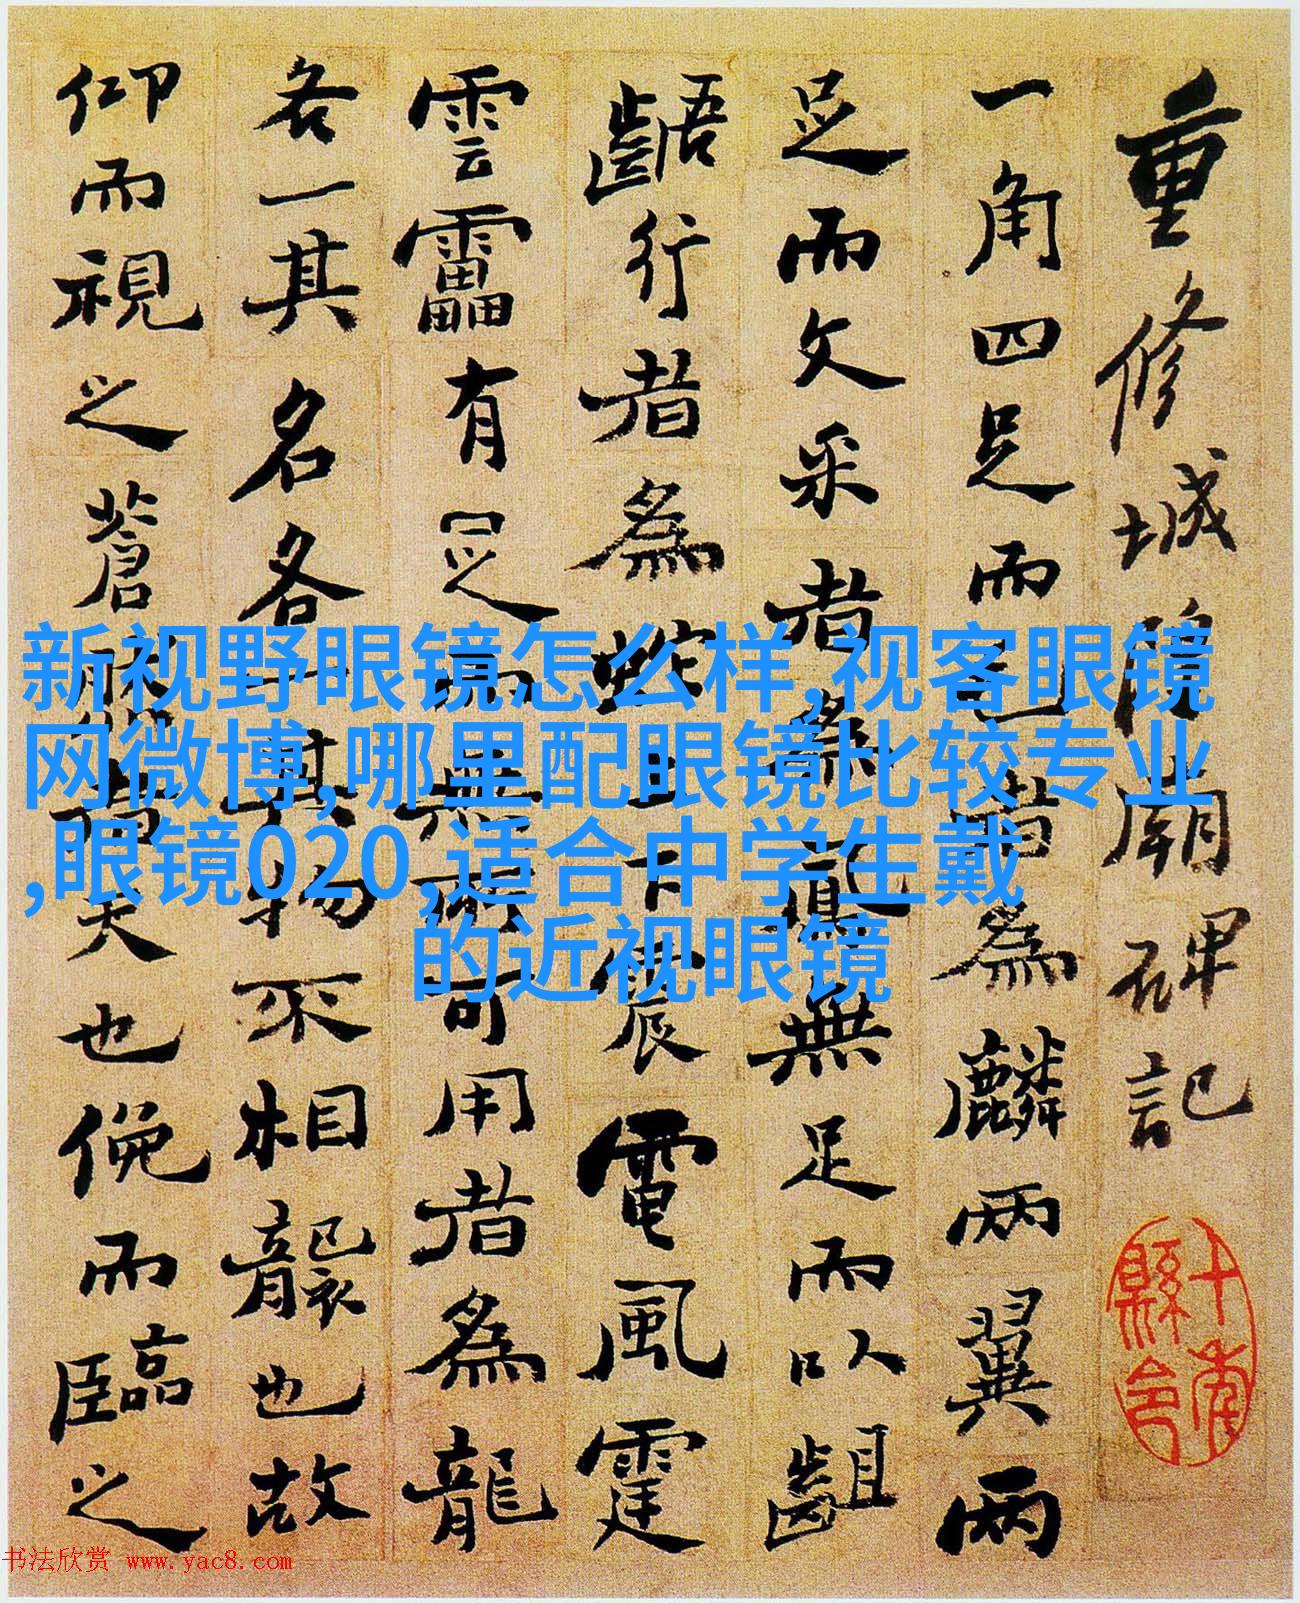 重修城隍廟碑記
一角四足而
者為麟兩翼兩
足而文采者為
無足而以齟
齬行者為蛇
震電風霆
雲雷有
可用者為龍
各一其名各一其物不相襲也故
仰而視之蒼
天也俛而臨之
新视野眼镜怎么样,视客眼镜
网微博,哪里配眼镜比较专业
,眼镜020,适合中学生戴
的近视眼镜
书法欣赏 www.yac8.com